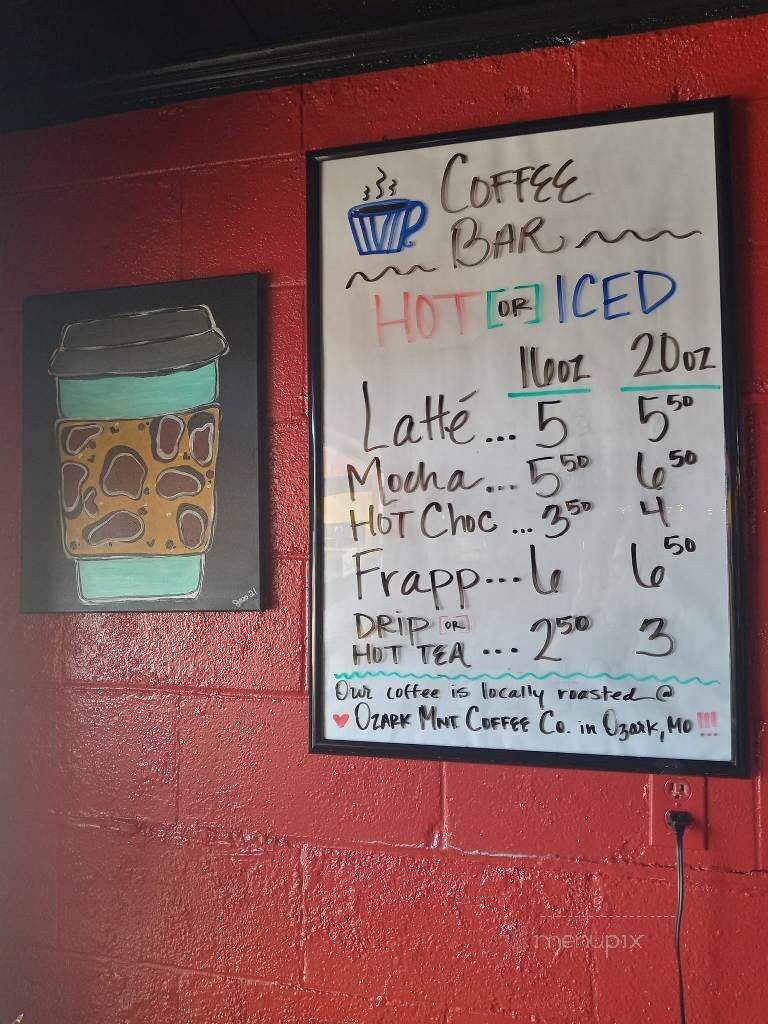 COFFEE
BAR
HOT [OR] ICED
16oz 20oz
Latté... 5 5⁵⁰
Mocha... 5⁵⁰ 6⁵⁰
HOT CHOC ... 3⁵⁰ 4
Frapp... 6 6⁵⁰
DRIP OR
HOT TEA ... 2⁵⁰ 3
Our coffee is locally roasted @
♥ OZARK MNT COFFEE Co. in Ozark, MO !!!
menupix